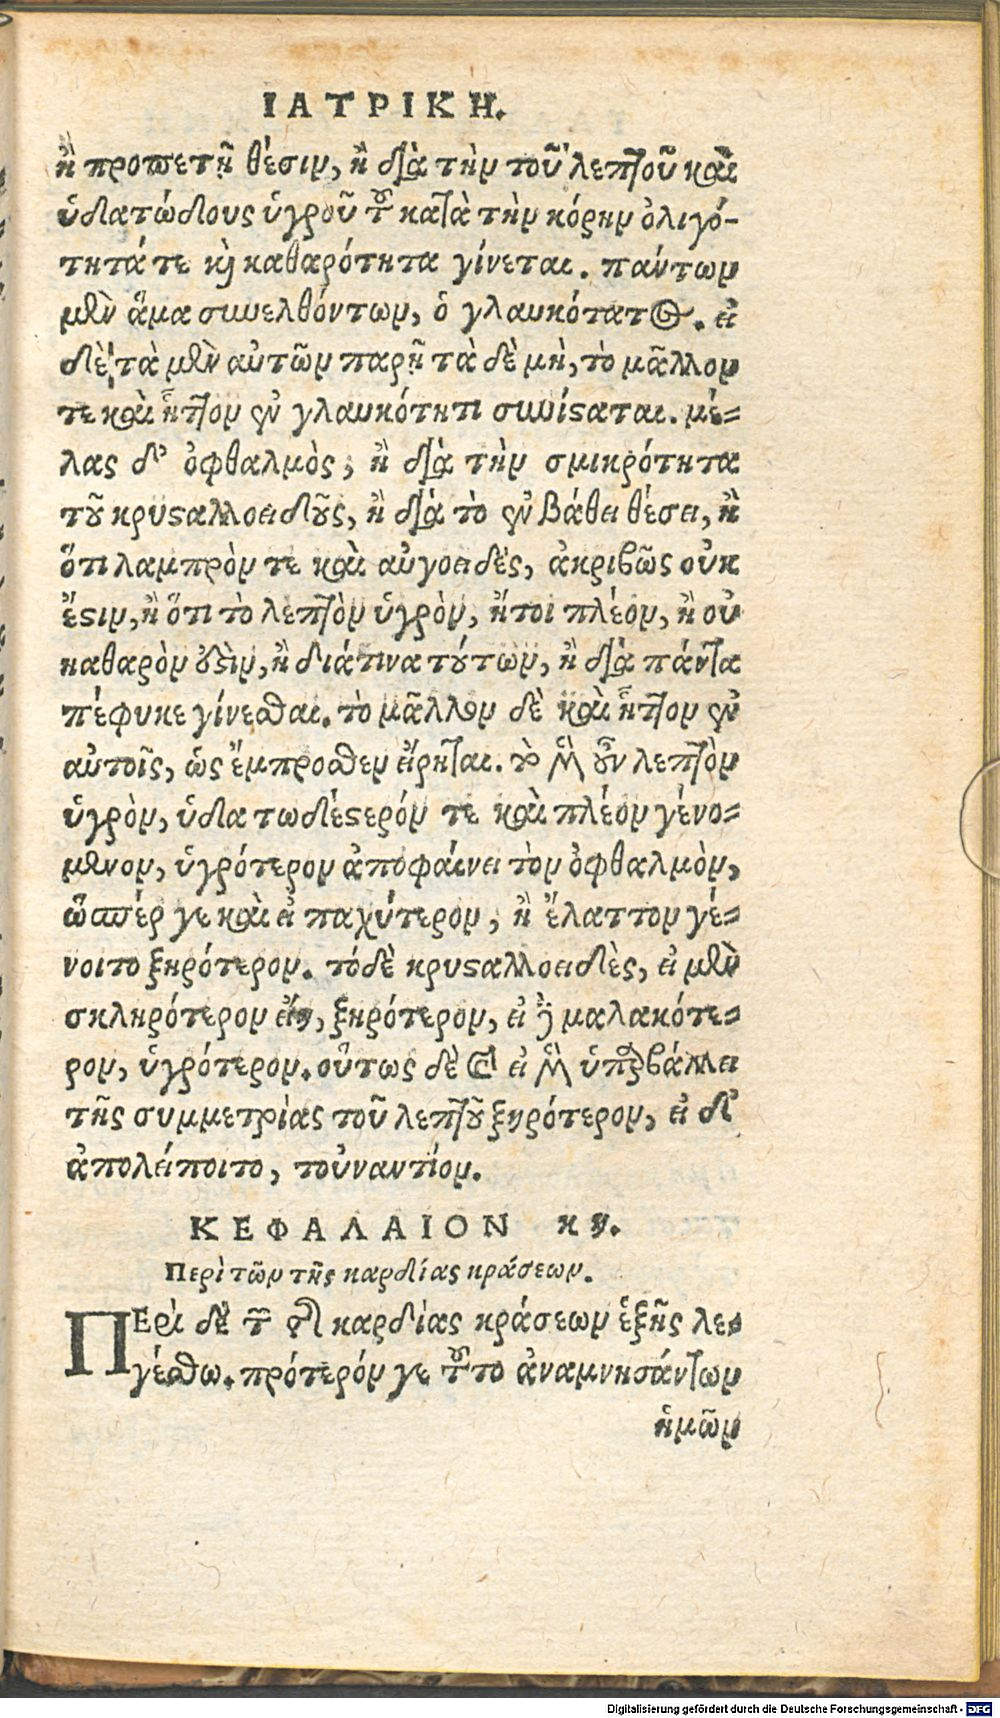 ΙΑΤΡΙΚΗ.
ἢ προπετῆ θέσιν, ἢ διὰ τὴν τοῦ λεπτοῦ καὶ
ὑδατώδους ὑγροῦ τοῦ κατὰ τὴν κόρην ὀλιγό-
τητά τε καὶ καθαρότητα γίνεται. πάντων
μὲν ἅμα συνελθόντων, ὁ γλαυκότατος. εἰ
δὲ τὰ μὲν αὐτῶν παρῇ τὰ δὲ μὴ, τὸ μᾶλλον
τε καὶ ἧττον ἐν γλαυκότητι συνίσταται. μέ-
λας δ' ὀφθαλμὸς, ἢ διὰ τὴν σμικρότητα
τοῦ κρυσταλλοειδοῦς, ἢ διὰ τὸ ἐν βάθει θέσει, ἢ
ὅτι λαμπρὸν τε καὶ αὐγοειδές, ἀκριβῶς οὐκ
ἔστιν, ἢ ὅτι τὸ λεπτὸν ὑγρὸν, ἤτοι πλέον, ἢ οὐ
καθαρὸν οὐσὶν, ἢ διάτινα τούτων, ἢ διὰ πάντα
πέφυκε γίνεσθαι. τὸ μᾶλλον δὲ καὶ ἧττον ἐν
αὐτοῖς, ὡς ἔμπροσθεν εἴρηται. τὸ μὲν οὖν λεπτὸν
ὑγρὸν, ὑδατωδέστερόν τε καὶ πλέον γένο-
μενον, ὑγρότερον ἀποφαίνει τὸν ὀφθαλμὸν,
ὥσπέρ γε καὶ εἰ παχύτερον, ἢ ἔλαττον γέ-
νοιτο ξηρότερον. τόδὲ κρυσταλλοειδὲς, εἰ μὲν
σκληρότερον εἴη, ξηρότερον, εἰ δὲ μαλακότε-
ρον, ὑγρότερον. οὕτως δὲ καὶ εἰ μὲν ὑπερβάλλει
τῆς συμμετρίας τοῦ λεπτοῦ ξηρότερον, εἰ δ'
ἀπολείποιτο, τοὐναντίον.
ΚΕΦΑΛΑΙΟΝ κη.
Περὶ τῶν τῆς καρδίας κράσεων.
ΠΕρὶ δὲ τῶν τῆς καρδίας κράσεων ἑξῆς λε-
γέσθω. πρότερόν γε τοῦτο ἀναμνησάντων
ἡμῶν
Digitalisierung gefördert durch die Deutsche Forschungsgemeinschaft - DFG